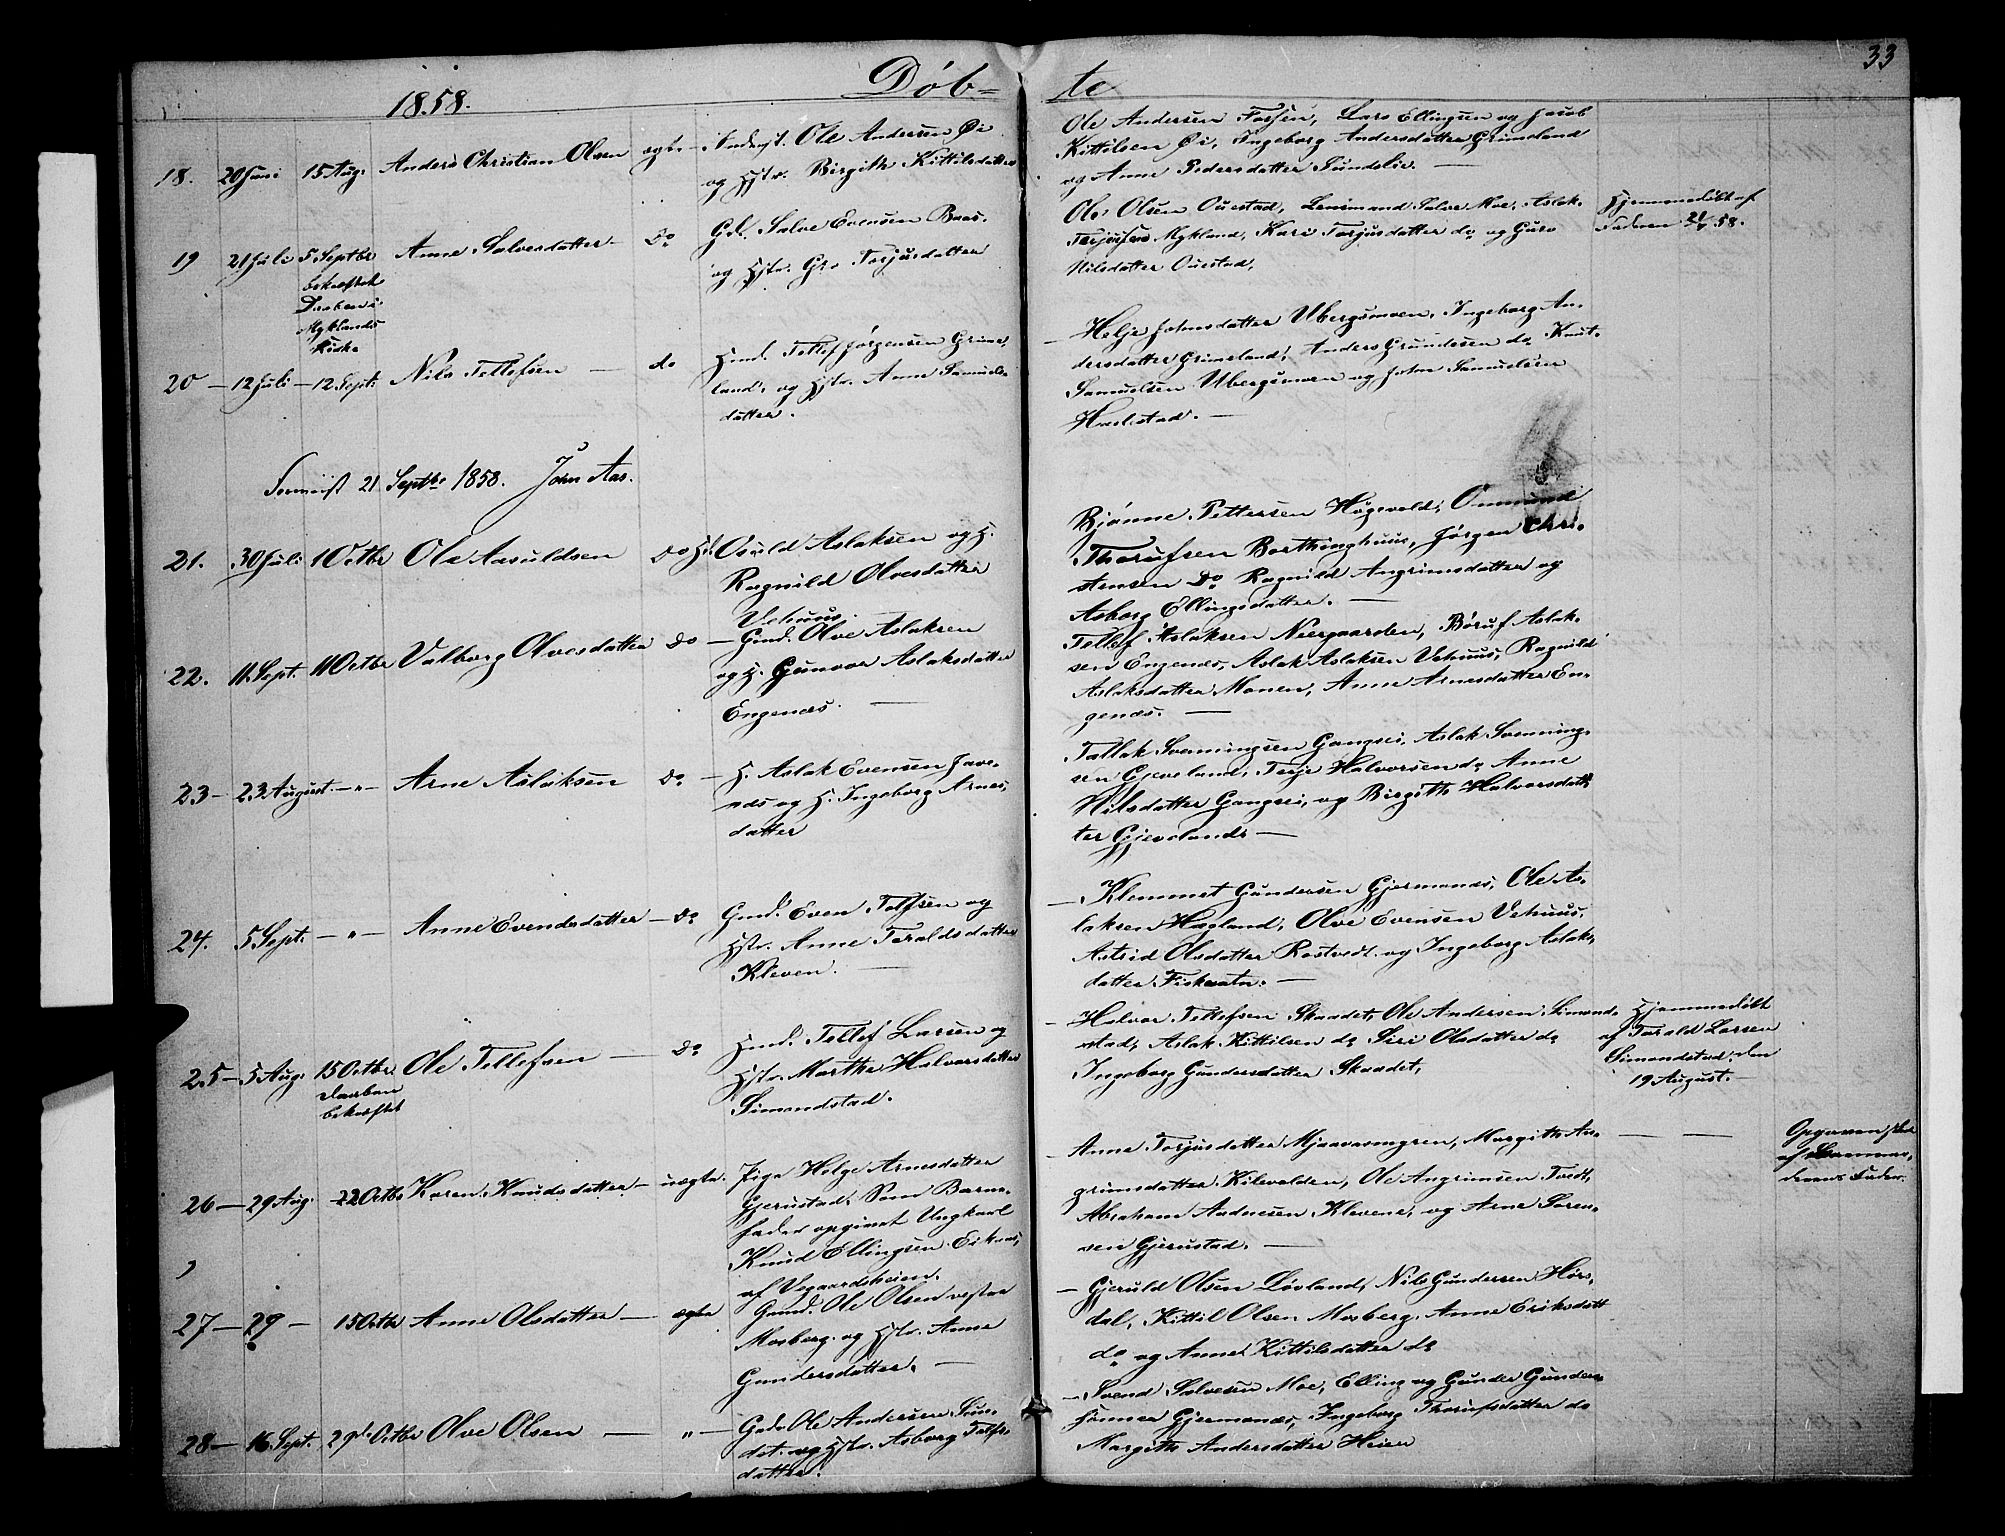 33
1858. Døb- te
18. 20 Juni 15 Aug. Anders Christian Olsen ægte Ole Andersen Øi
og Hstr. Birgith Kittilsdatter
Ole Andersen Torsen, Lars Ellingsen og Jacob
Kittilsen Øi, Ingeborg Andersdatter Grimeland
og Anne Pedersdatter Sundslie. —
19 21 Juli 5 Septbr Anne Salvesdatter — Do Gd. Salve Evensen Baas-
bekræftet
Daaben i
Myklands
Kirke
og Hstr. Gro Torjusdatter
Ole Olsen Ouestad, Lensmand Salve Moe, Aslak
Terjesen Mykland, Kari Torjusdatter do og Guro
Nilsdatter Ouestad,
Hjemmedøbt af
Faderen 21/7 58.
20 — 12 Juli — 12 Sept. Nils Tellefsen — do Hmd. Tellef Jørgensen Grime-
land, og Hstr. Anne Samuels-
datter.
— Helje Johnsdatter Ubergsmoen, Ingeborg An-
dersdatter Grimeland, Anders Gundesen do Knut
Samuelsen Ubergsmoen og John Samuelsen
Haslestad. —
21 Septbr 1858. John Aas.
21. 30 Juli 10 Octbr Ole Aasuldsen Do Hd. Osuld Aslaksen og H.
Ragnild Olvesdatter
Vehuus.
Bjønne Pettersen Høgevold, Onmund
Thorufsen Borthinghuus, Jørgen Chri-
stensen Do Ragnild Angrimsdatter og
Asborg Ellingsdatter. —
22. 11. Sept. 11 Octbr Valborg Olvesdatter Do — Gmd. Olve Aslaksen
og H. Gunvor Aslaksdatter
Engenæs. —
Tellef Aslaksen Neergaarden, Boruf Aslak-
sen Engenæs, Aslak Aslaksen Vehuus, Ragnild
Aslaksdatter Monen, Anne Arnesdatter En-
genæs. —
23 — 23 August. — " — Arne Aslaksen Do — H. Aslak Evensen Jave-
næs og H. Ingeborg Arnes-
datter
Tallak Svenningsen Gangsei, Aslak Svenning-
sen Gjeveland, Terje Halvorsen do Anne
Nilsdatter Gangsei, og Birgith Halvorsdat-
ter Gjeveland —
24. 5 Sept. — " — Anne Evendsdatter — Do Gmd. Even Tolfsen og
Hstr. Anne Taraldsdatter
Kleven. —
— Klemmet Gundersen Gjermones, Ole As-
laksen Hagland, Olve Evensen Vehuus,
Astrid Olsdatter Rostvedt og Ingeborg Aslaks-
datter Fiskvatn. —
25 — 5 Aug. 15 Octbr. Ole Tellefsen — Do Hmd. Tellef Larsen og
Daaben
bekræftet
Hstr. Marthe Halvorsdatter
Simonstad.
— Halvor Tellefsen Skaadet, Ole Andersen Simond-
stad, Aslak Kittilsen do Siri Olsdatter do
Ingeborg Gundersdatter Skaadet,
Hjemmedøbt
af Torald Larsen
Simondstad den
19 August. —
26 — 29 Aug. 22 Octbr Karen Knudsdatter — uægte. Pige Helge Arnesdatter
Gjerustad, Som Barne-
fader opgivet Ungkarl
Knud Ellingsen Eiknæs,
af Vegaardsheien.
— Anne Torjusdatter Mjaavasmyren, Margith An-
grimsdatter Kileviolden, Ole Angrimsen Tvedt,
Abraham Andresen Klevene, og Arne Soren-
sen Gjerustad. —
27 — 29 — 15 Octbr Anne Olsdatter — ægte Gmd. Ole Olsen vestre
Mosberg og Hstr. Anne
Gundersdatter. —
— Gjeruld Olsen Løvland, Nils Gundersen Hørs-
dal, Kittil Olsen Mosberg, Anne Eriksdatt
do og Anne Kittilsdatter do
28 — 16 Sept. 29de Octbr Olve Olsen — " — Gmd. Ole Andersen Sun-
det og Hstr. Asborg Tolfs-
datter.
— Svend Salvesen Moe, Elling og Gunder Gunder-
sønner Gjermones, Ingeborg Thorufsdatter do
Margith Andersdatter Heien